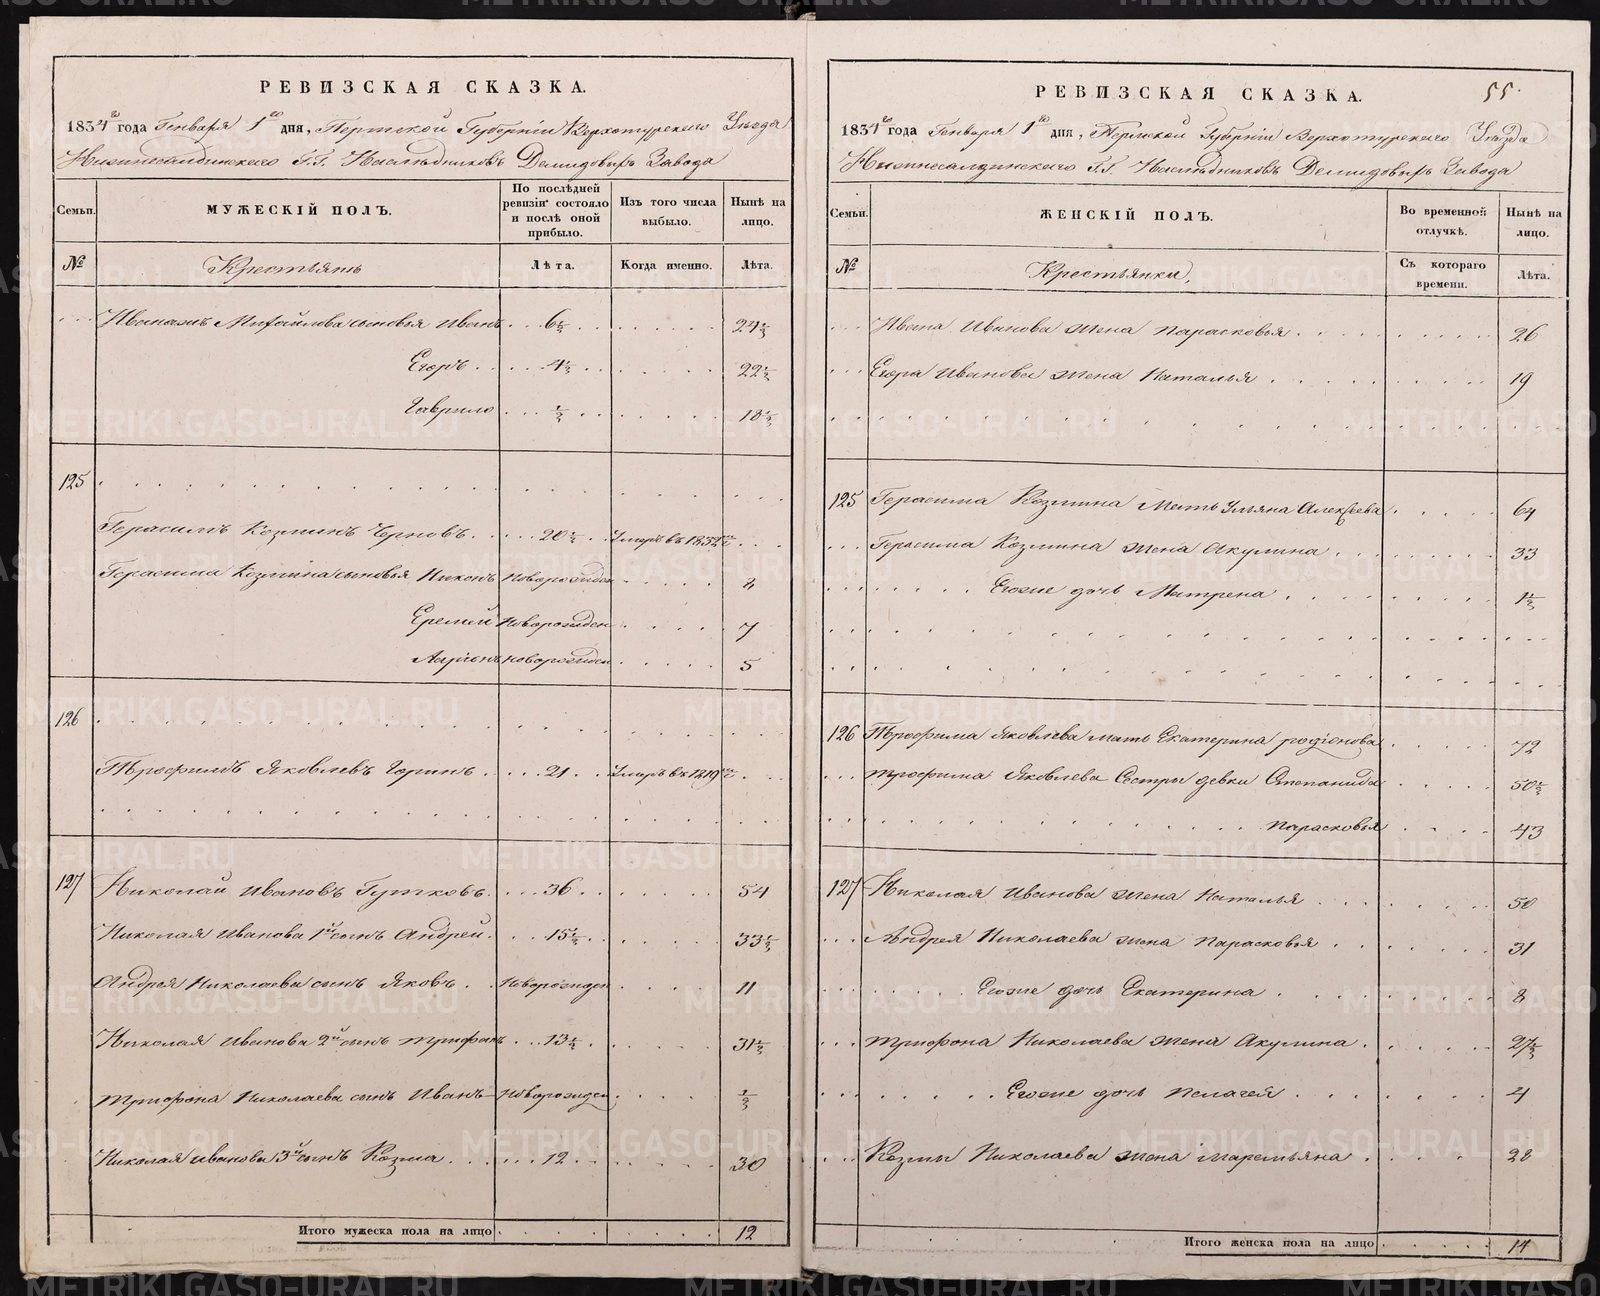 РЕВИЗСКАЯ СКАЗКА.
1834го года Генваря 1го дня, Пермской Губерніи Верхотурскаго Уѣзда
Нижнесалдинскаго Г.Г. Наслѣдниковъ Демидовыхъ Завода
Семьи.
МУЖЕСКІЙ ПОЛЪ.
По послѣдней ревизіи состояло и послѣ оной прибыло.
Изъ того числа выбыло.
Нынѣ на лицо.
№
Крестьянъ
Лѣта.
Когда именно.
Лѣта.
Михайлова сыновья Иванъ 6½ 24½
Егоръ 4½ 22½
Гаврило ½ 18½
125
Герасимъ Козминъ Черновъ 20½ Умеръ въ
Герасима Козмина сыновья Никонъ новорожден 8
Еремѣй новорожден 7
новорожден 5
126
Трофимъ Яковлевъ Горинъ 21 Умеръ въ 1819
127 Николай Ивановъ Гутковъ 36 54
Николая Иванова 1й сынъ Андрей 15½ 33½
Андрея Николаева сынъ Яковъ новорожден 11
Николая Иванова 2й сынъ Трифонъ 13½ 31½
Трифона Николаева сынъ Иванъ новорожден ½
Николая Иванова 3й сынъ Козма 12 30
Итого мужеска пола на лицо 12
55.
РЕВИЗСКАЯ СКАЗКА.
1834го года Генваря 1го дня, Пермской Губерніи Верхотурскаго Уѣзда
Нижнесалдинскаго Г.Г. Наслѣдниковъ Демидовыхъ Завода
Семьи.
ЖЕНСКІЙ ПОЛЪ.
Во временной отлучкѣ.
Нынѣ на лицо.
№
Крестьянки,
Съ котораго времени.
Лѣта.
Ивана Иванова жена Парасковья 26
Егора Иванова жена Наталья 19
125 Герасима Козмина мать Ульяна Алексѣева 64
Герасима Козмина жена Акулина 33
Егоже дочь Матрена 1½
126 Трофима Яковлева мать Екатерина Родіонова 72
Трофима Яковлева сестры девки Степанида 50½
Парасковья 43
127 Николая Иванова жена Наталья 50
Андрея Николаева жена Парасковья 31
Егоже дочь Екатерина 8
Трифона Николаева жена Акулина 27½
Егоже дочь Пелагея 4
Козмы Николаева жена Маремьяна 28
Итого женска пола на лицо 14
METRIKI.GASO-URAL.RU